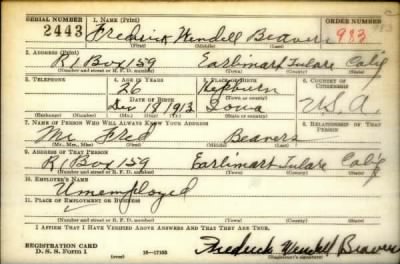 SERIAL NUMBER 1. NAME (Print) ORDER NUMBER
2443 Frederick Wendell Beavers 983
(First) (Middle) (Last)
2. ADDRESS (Print)
R1 Box 159 Earlimart Tulare Calif
(Number and street or R. F. D. number) (Town) (County) (State)
3. TELEPHONE 4. AGE IN YEARS 5. PLACE OF BIRTH 6. COUNTRY OF CITIZENSHIP
26 Hepburn
(Town or county)
DATE OF BIRTH U.S.A.
Dec 18 1913 Iowa
(Exchange) (Number) (Mo.) (Day) (Yr.) (State or country)
7. NAME OF PERSON WHO WILL ALWAYS KNOW YOUR ADDRESS 8. RELATIONSHIP OF THAT PERSON
Mr. Fred Beavers
(Mr., Mrs., Miss) (First) (Middle) (Last)
9. ADDRESS OF THAT PERSON
R1 Box 159 Earlimart Tulare Calif
(Number and street or R. F. D. number) (Town) (County) (State)
10. EMPLOYER'S NAME
Unemployed
11. PLACE OF EMPLOYMENT OR BUSINESS
(Number and street or R. F. D. number) (Town) (County) (State)
I AFFIRM THAT I HAVE VERIFIED ABOVE ANSWERS AND THAT THEY ARE TRUE.
REGISTRATION CARD
D. S. S. Form 1 16-17105 Frederick Wendell Beavers
(Registrant's signature)